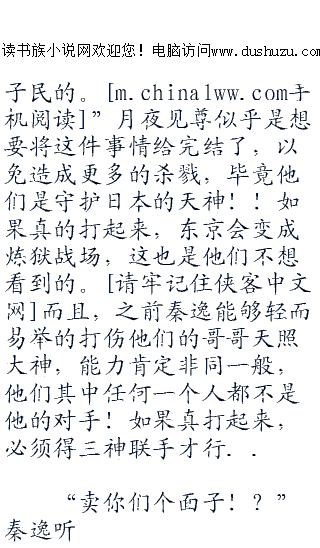 读书族小说网欢迎您！电脑访问www.dushuzu.com
子民的。[m.china1ww.com手
机阅读]”月夜见尊似乎是想
要将这件事情给完结了，以
免造成更多的杀戮，毕竟他
们是守护日本的天神！！如
果真的打起来，东京会变成
炼狱战场，这也是他们不想
看到的。[请牢记住侠客中文
网]而且，之前秦逸能够轻而
易举的打伤他们的哥哥天照
大神，能力肯定非同一般，
他们其中任何一个人都不是
他的对手！如果真打起来，
必须得三神联手才行．．
“卖你们个面子！？”
秦逸听